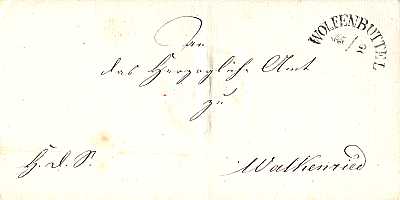 WOLFENBÜTTEL
An
das Herzogliche Amt
zu
H. d. S.
Walkenried